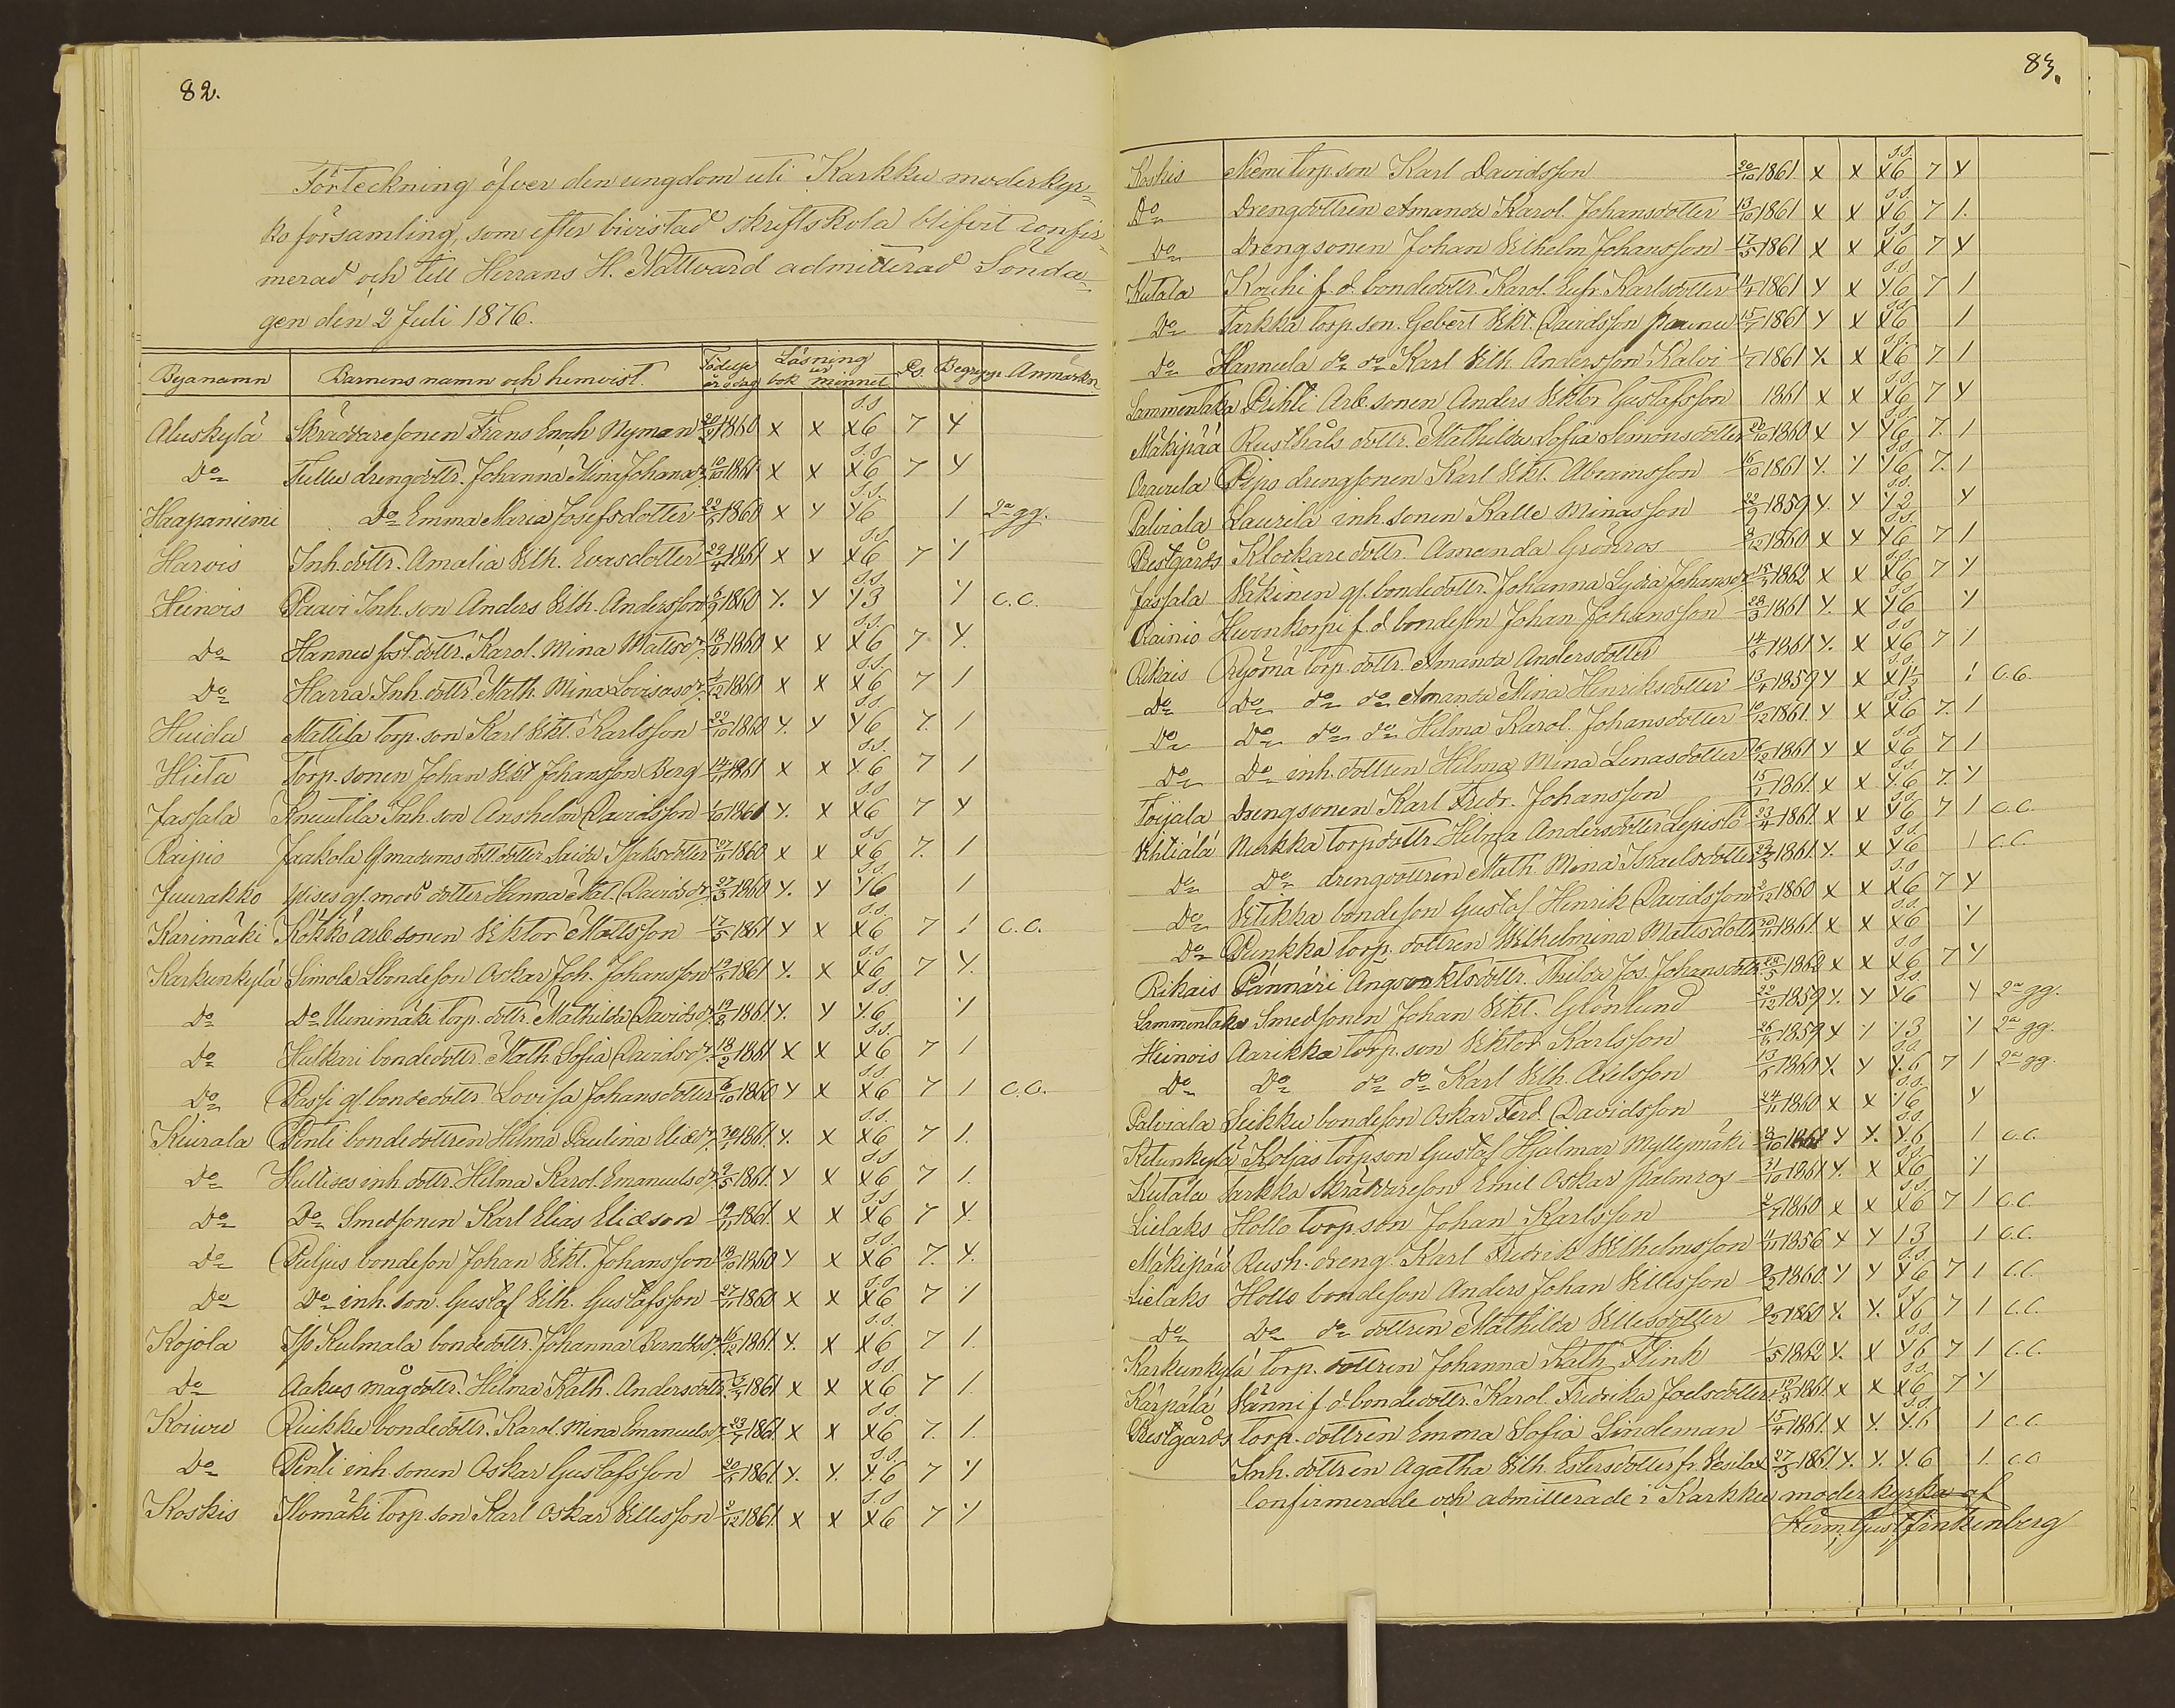 82.
Förteckning öfver den ungdom uti Karkku moderkyr-
ko församling, som efter bivistad skriftskola blifvit confir-
merad och till Herrans H. Nattvard admitterad Sönda-
gen den 2 Juli 1876.
Byanamn Barnens namn och hemvist. Födelse år o dag Läsning ur bok minnet Ps. Begrepp. Anmärkn
Aluskylä Skräddaresonen Frans Enoch Nyman 1860 x x x6 7 x
Do Tullu drengdottr. Johanna Mina Johansdr 1861 x x x6 7 x
Haapaniemi Do Emma Maria Josefsdotter 1860 x x x6 1 2a gg.
Harois Inh. dottr. Amalia Wilh. Evasdotter 1861 x x x6 7 x
Heinois Paavi Inh. son Anders Wilh. Andersson 1860 x x x3 x C.C.
Do Hannu fost. dottr. Karol. Mina Mattsdr 1860 x x x6 7 x
Do Harra Inh. dottr. Math. Mina Lovisasdr 1860 x x x6 7 1
Huida Mattila torp. son Karl Vikt. Karlsson 1860 x x x6 7 1
Hieta Torp. sonen Johan Vikt Johansson Berg 1861 x x x6 7 1
Jassala Knuutila Inh. son Anshelm Davidsson 1861 x x x6 7 x
Raipio Jaakola Gmadams dott dotter Saida Isaksdotter 1860 x x x6 7 1
Juurakko dotter Hanna Mat. Davidsdr 1860 x x x6 1
Karimäki Kökkö arb sonen Viktor Mattsson 17/5 1861 x x x6 7 1 C.C.
Karkunkylä Simola Lbondeson Oskar Joh. Johansson 1861 x x x6 7 x
Do Do Uunimäki torp. dottr. Mathilda Davidsdr 1861 x x x6 x
Do Hulkari bondedottr. Math. Sofia Davidsdr 18/2 1861 x x x6 7 1
Do Passi gf. bondedottr. Lovisa Johansdotter 1860 x x x6 7 1 C.C.
Kiurala Pentti bondedottren Hilma Paulina Eliædr 1861 x x x6 7 1
Do Hullises inh. dottr. Hilma Karol. Emanuelsdr 1861 x x x6 7 1
Do Do Smedsonen Karl Elias Eliæson 1861 x x x6 7 x
Do Puljus bondeson Johan Vikt. Johansson 18/10 1860 x x x6 7 x
Do Do inh. son Gustaf Wilh. Gustafsson 27/11 1860 x x x6 7 x
Kojola Ylö Kulmala bondedottr. Johanna Berndtsdr 16/12 1861 x x x6 7 1
Do Aakus mågdottr. Hilma Kath. Andersdottr 1861 x x x6 7 1
Koivu Ruikku bondedottr. Karol. Mina Emanuelsdr 1861 x x x6 7 1
Do Pentti inh. sonen Oskar Gustafsson 1861 x x x6 7 x
Koskis Ilomäki torp. son Karl Oskar Villesson 1861 x x x6 7 x
83.
Koskis Niemi torp. son Karl Davidsson 20/10 1861 x x x6 7 x
Do Drengdottren Amanda Karol. Johansdotter 13/10 1861 x x x6 7 1
Do Drengsonen Johan Wilhelm Johansson 17/5 1861 x x x6 7 x
Kutala Kouhi f. d. bondedottr. Karol. Eufr. Karlsdotter 1861 x x x6 7 1
Do Tarkka torp. son. Gebert Vikt. Davidsson 1861 x x x6 1
Do Hannula do do Karl Wilh. Andersson Kalvi 1861 x x x6 7 1
Lammentaka Prihti Arb. sonen Anders Viktor Gustafsson 1861 x x x6 7 x
Mäkipää Rusthåls dottr. Mathilda Sofia Simonsdotter 1860 x x x6 7 1
Piips drengsonen Karl Vikt. Abramsson 16/10 1861 x x x6 7 1
Palviala Laurila inh. sonen Kalle Minasson 1859 x x x2 x
Prestgårds Klockaredottr. Amanda Grönros 1860 x x x6 7 1
Jassala Wäkinen gf. bondedottr. Johanna Lydia Johansdr 1862 x x x6 7 x
Rainio Hevonkorpi f. d. bondeson Johan Johansson 28/3 1861 x x x6 x
Rikais Ryömä torp. dottr. Amanda Andersdotter 1861 x x x6 7 1
Do Do do do Amanda Mina Henriksdotter 1859 x x x1½ 1 C.C.
Do Do do do Hilma Karol. Johansdotter 1861 x x x6 7 1
Do Do inh. dottren Hilma Mina Lenasdotter 16/12 1861 x x x6 7 1
Toijala Drengsonen Karl Fredr. Johansson 1861 x x x6 7 x
Vihtiälä Nurkka torpdottr. Hilma Andersdotter Lepistö 23/4 1861 x x x6 7 1 C.C.
Do Do drengdottren Math. Mina Israelsdotter 1861 x x x6 1 C.C.
Do Vitikka bondeson Gustaf Henrik Davidsson 1860 x x x6 7 x
Do Punkka torp. dottren Wilhelmina Mattsdotter 1861 x x x6 x
Rikais Pännäri Ängsvaktsdottr. Thilda Jos. Johansdottr 1862 x x x6 7 x
Lammentaka Smedsonen Johan Vikt. Grönlund 22/12 1859 x x x6 x 2a gg.
Heinois Aarikka torp. son Viktor Karlsson 1859 x x x3 x 2a gg.
Do Do do do Karl Wilh. Axelsson 1860 x x x6 7 1 2a gg.
Palviala Seikku bondeson Oskar Ferd. Davidsson 24/11 1860 x x x6 x
Ketunkylä Koljas torpson Gustaf Hjalmar Myllymäki 1861 x x x6 1 C.C.
Kutala Tarkka Skräddareson Emil Oskar Palmros 31/10 1861 x x x6 x
Lielaks Hollo torp. son Johan Karlsson 1860 x x x6 7 1 C.C.
Mäkipää Rush. dreng Karl Fredrik Wilhelmsson 1856 x x 13 1 C.C.
Lielaks Hollo bondeson Anders Johan Villesson 1860 x x x6 7 1 C.C.
Do Do do dottren Mathilda Villesdotter 1860 x x x6 7 1 C.C.
Karkunkylä torp. dottren Johanna Kath. Flink 1/5 1862 x x x6 7 1 C.C.
Kärpälä Wänni f. d. bondedottr. Karol. Fredrika Joelsdotter 1861 x x x6 7 x
Prestgårds torp. dottren Emma Sofia Lindeman 15/4 1861 x x x6 1 C.C.
Inh. dottren Agatha Wilh. Estersdotter fr. Vesilax 27/3 1861 x x x6 1 C.C.
Confirmerade och admitterade i Karkku moderkyrka af
Herm. Gust. Finkenberg